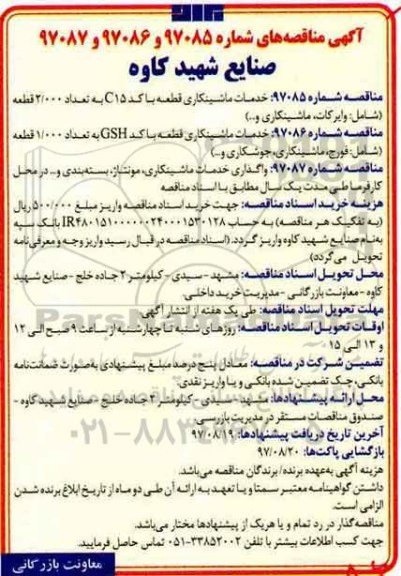 آگهی مناقصه‌های شماره ۹۷۰۸۵ و ۹۷۰۸۶ و ۹۷۰۸۷
صنایع شهید کاوه
مناقصه شماره ۹۷۰۸۵: خدمات ماشینکاری قطعه با کد C15 به تعداد ۲/۰۰۰ قطعه
(شامل: وایرکات، ماشینکاری و..)
مناقصه شماره ۹۷۰۸۶: خدمات ماشینکاری قطعه با کد GSH به تعداد ۱/۰۰۰ قطعه
(شامل: فورج، ماشینکاری، جوشکاری و..)
مناقصه شماره ۹۷۰۸۷: واگذاری خدمات ماشینکاری، مونتاژ، بسته‌بندی و.. در محل
کارفرما طی مدت یک سال مطابق با اسناد مناقصه
هزینه خرید اسناد مناقصه: جهت خرید اسناد مناقصه واریز مبلغ ۵۰۰/۰۰۰ ریال
(به تفکیک هر مناقصه) به حساب IR۴۸۰۱۵۱۰۰۰۰۰۰۲۴۰۰۰۱۵۳۰۱۲۸ بانک سپه
به‌نام صنایع شهید کاوه واریز گردد. (اسناد مناقصه در قبال رسید واریز وجه و معرفی‌نامه
تحویل می‌گردد)
محل تحویل اسناد مناقصه: مشهد - سیدی - کیلومتر ۲ جاده خلج - صنایع شهید
کاوه - معاونت بازرگانی - مدیریت خرید داخلی.
مهلت تحویل اسناد مناقصه: طی یک هفته از انتشار آگهی.
اوقات تحویل اسناد مناقصه: روزهای شنبه تا چهارشنبه از ساعت ۹ صبح الی ۱۲
و ۱۳ الی ۱۵
تضمین شرکت در مناقصه: معادل پنج درصد مبلغ پیشنهادی به‌صورت ضمانت‌نامه
بانکی، چک تضمین شده بانکی و یا واریز نقدی
محل ارائه پیشنهادها: مشهد - سیدی - کیلومتر ۲ جاده خلج - صنایع شهید کاوه -
صندوق مناقصات مستقر در مدیریت بازرسی.
آخرین تاریخ دریافت پیشنهادها: ۹۷/۰۸/۱۹
بازگشایی پاکت‌ها: ۹۷/۰۸/۲۰
هزینه آگهی به‌عهده برنده/ برندگان مناقصه می‌باشد.
داشتن گواهینامه معتبر سمتا و یا تعهد به ارائه آن طی دو ماه از تاریخ ابلاغ برنده شدن
الزامی است.
مناقصه‌گذار در رد تمام و یا هریک از پیشنهادها مختار می‌باشد.
جهت کسب اطلاعات بیشتر با تلفن ۳۳۸۵۲۰۰۲-۰۵۱ تماس حاصل فرمایید.
معاونت بازرگانی